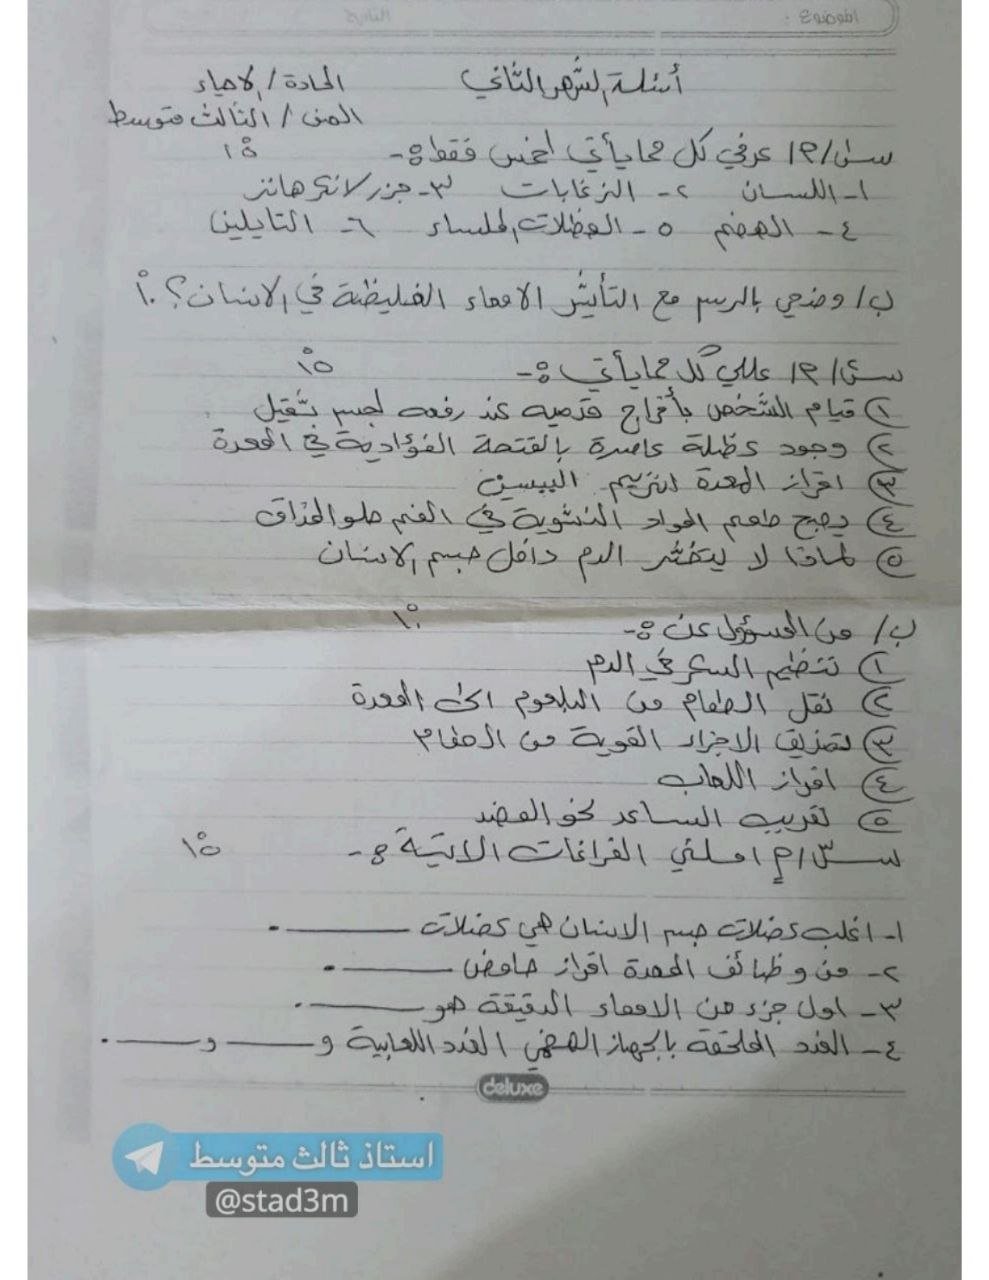 الموضوع : التاريخ
أسئلة الشهر الثاني المادة / الاحياء
الصف / الثالث متوسط
س١/ م عرفي كل مما يأتي لخمس فقط :- ١٥
١- اللسان ٢- الزغابات ٣- جزر لانكرهانز
٤- الهضم ٥- العضلات الملساء ٦- التايلين
ب/ وضحي بالرسم مع التأشير الامعاء الغليظة في الانسان ؟ ١٠
س٢/ م عللي كل مما يأتي :- ١٥
١ قيام الشخص بأفراج قدميه عند رفعه لجسم ثقيل
٢ وجود عظلة عاصرة بالفتحة الفؤادية في المعدة
٣ افراز المعدة انزيم الببسين
٤ يصبح طعم المواد النشوية في الفم حلو المذاق
٥ لماذا لا يتخثر الدم داخل جسم الانسان
ب/ من المسؤول عن :- ١٠
١ تنظيم السكر في الدم
٢ نقل الطعام من البلعوم الى المعدة
٣ تمزيق الاجزاء القوية من الطعام
٤ افراز اللعاب
٥ تقريب الساعد نحو العضد
س٣/ م املئي الفراغات الاتية :- ١٥
١- اغلب عضلات جسم الانسان هي عضلات ـــــــــ .
٢- من وظائف المعدة افراز حامض ـــــــــ .
٣- اول جزء من الامعاء الدقيقة هو ـــــــــ .
٤- الغدد الملحقة بالجهاز الهضمي الغدد اللعابية و ـــــــــ و ـــــــــ .
deluxe
استاذ ثالث متوسط
@stad3m